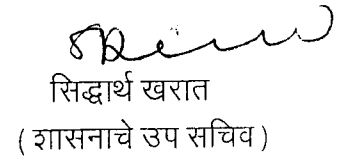 सिद्धार्थ खरात
( शासनाचे उप सचिव )